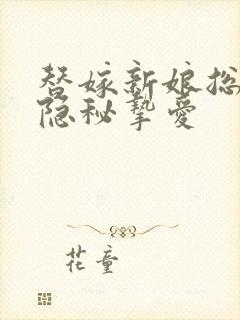 替嫁新娘总
隐秘挚爱
花童